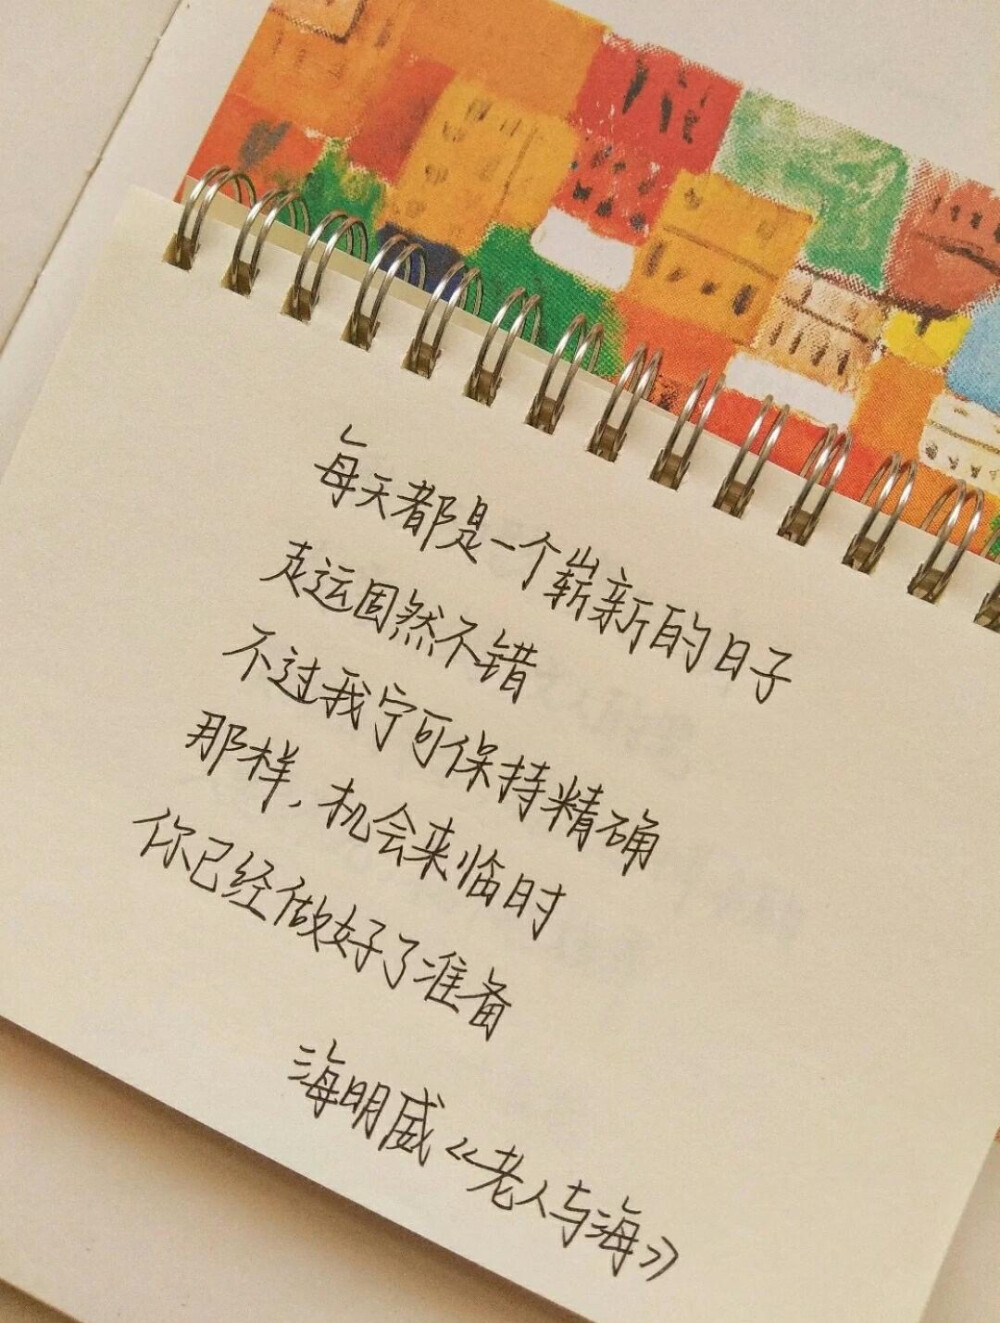 每天都是一个崭新的日子
走运固然不错
不过我宁可保持精确
那样,机会来临时
你已经做好了准备
海明威《老人与海》